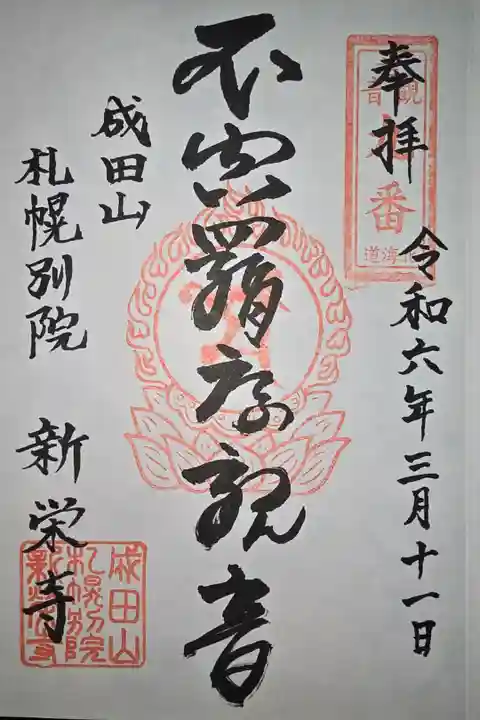 奉拝
令和六年三月十一日
不空羂索観音
成田山
札幌別院 新栄寺
番
成田山
札幌別院
新栄寺